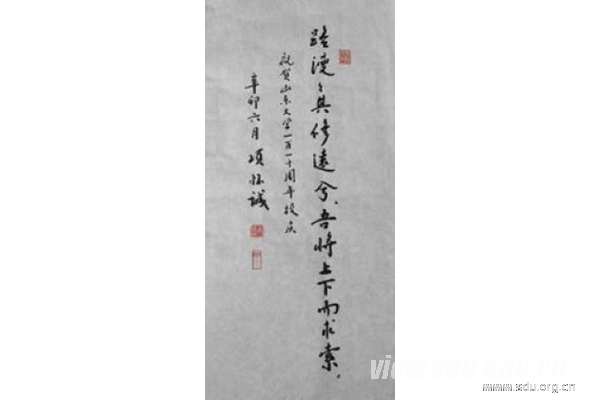 路漫々其修远兮、吾将上下而求索。
祝贺山东大学一百一十周年校庆
辛卯六月 项怀诚
view.sdu.edu.cn
www.sdu.org.cn